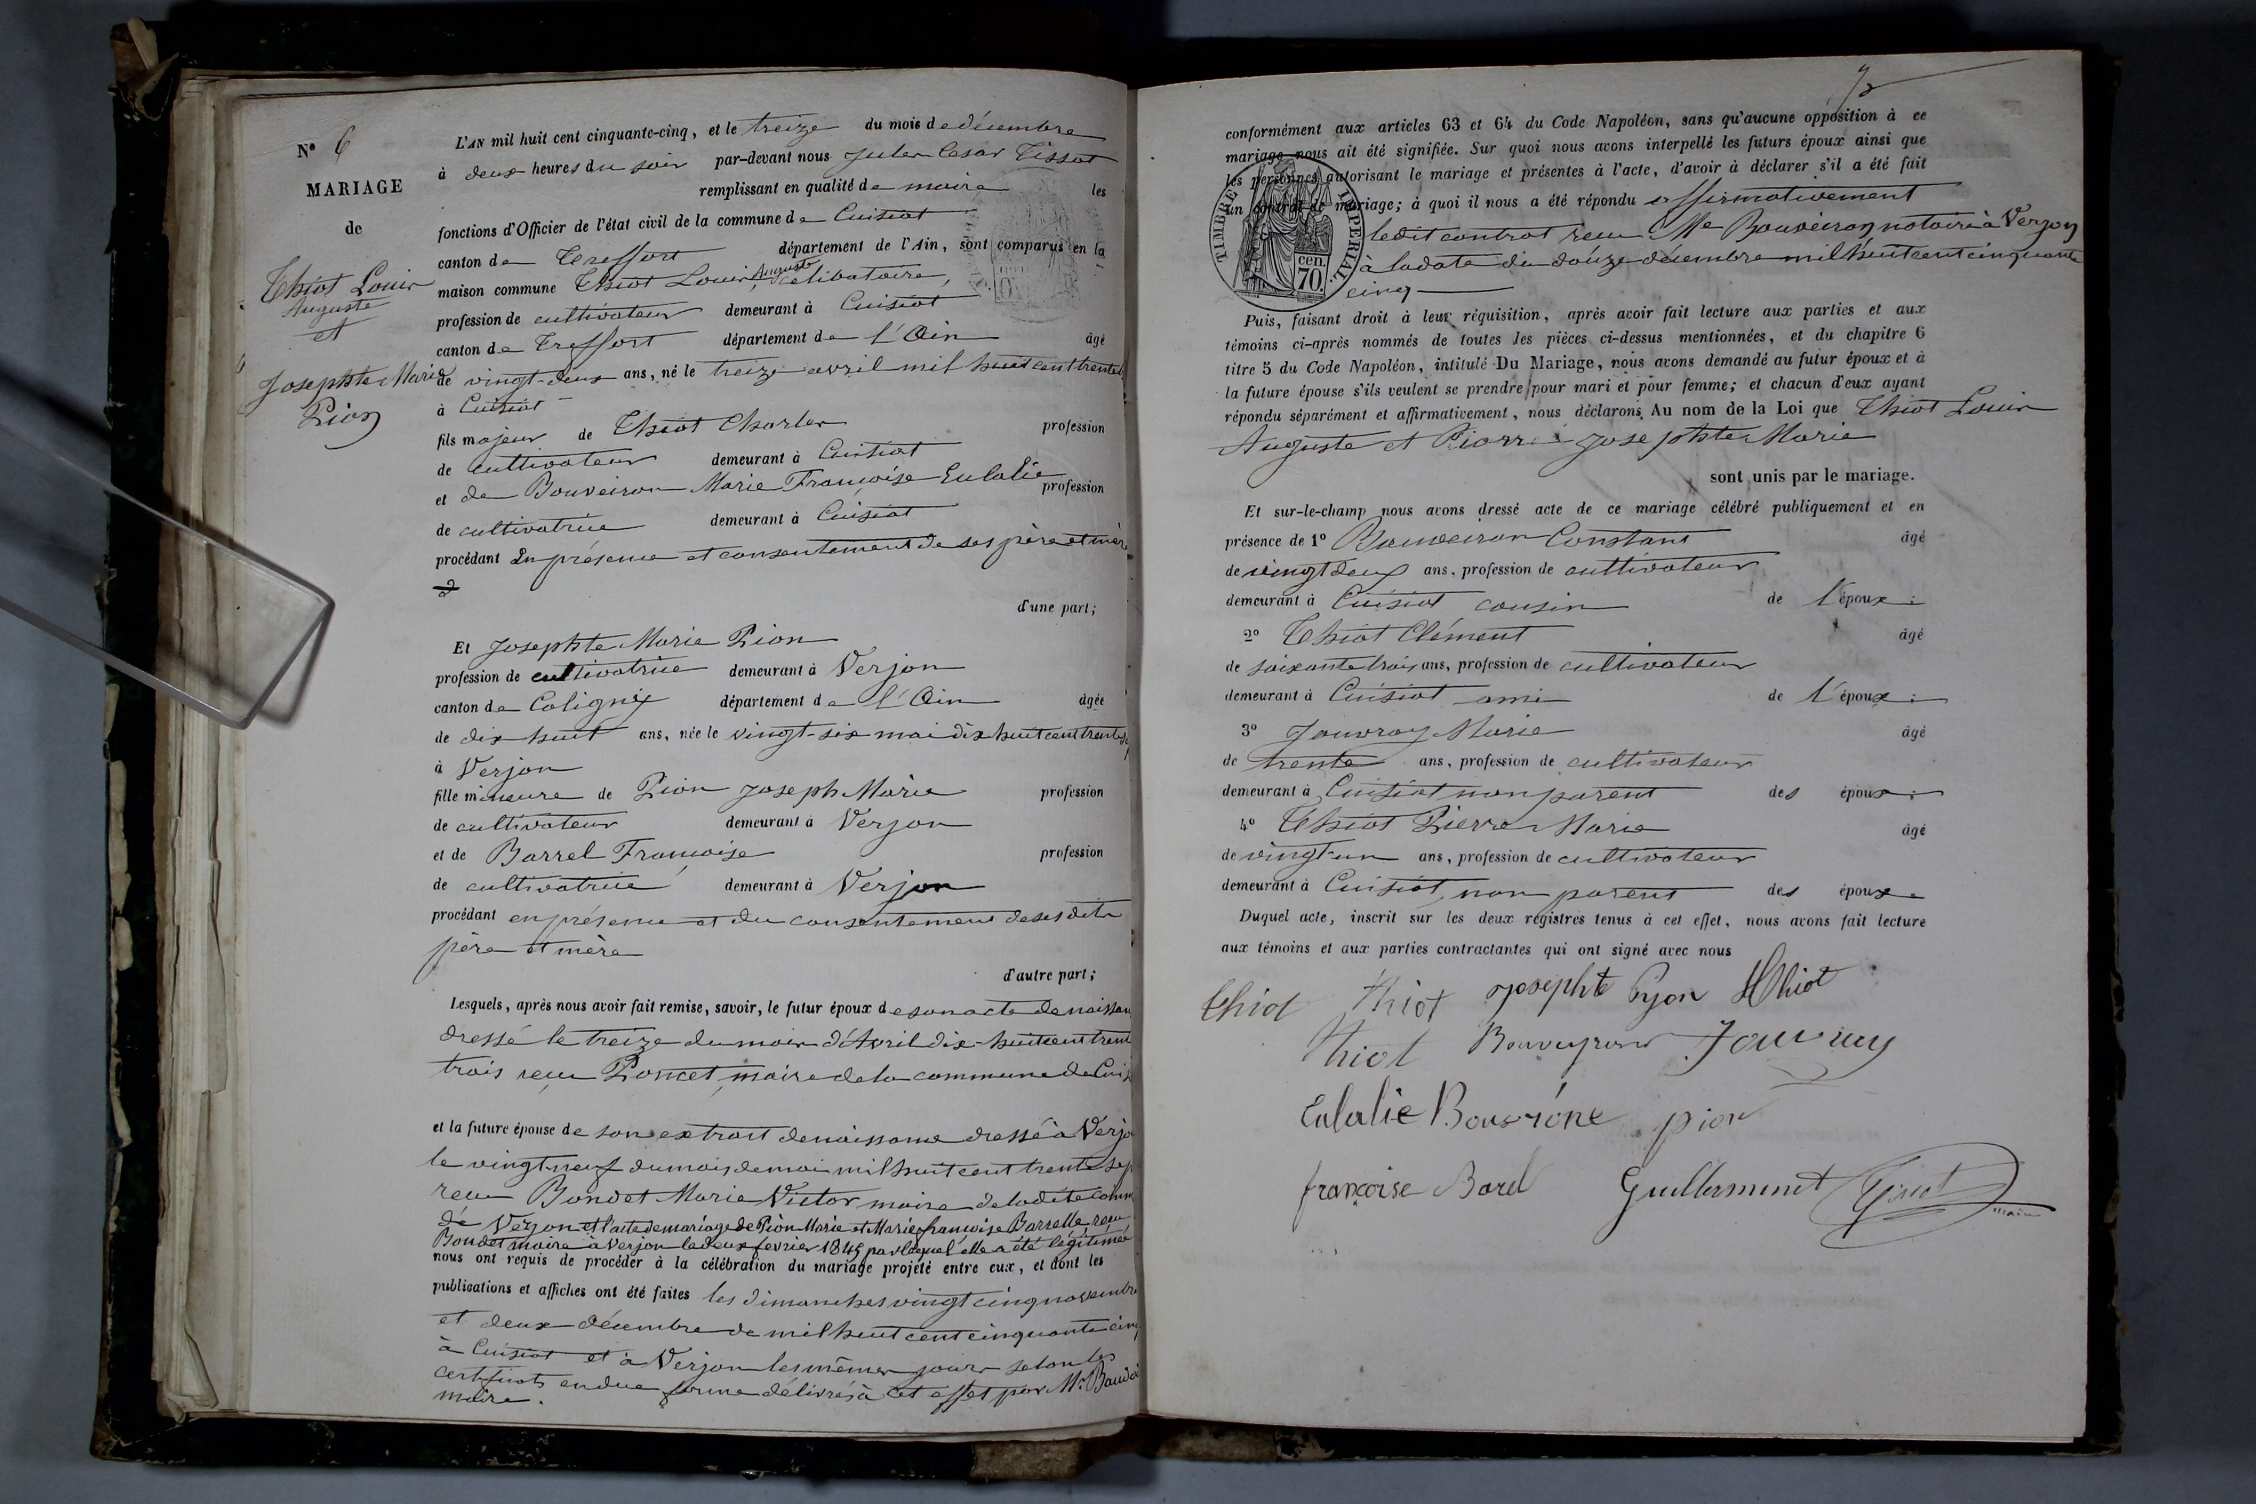 N° 6
MARIAGE
de
Thiot Louis
Auguste
et
Josephte Marie
Pion
L'AN mil huit cent cinquante-cinq, et le treize du mois de décembre
à deux heures du soir par-devant nous Jules Cesar Tissot
remplissant en qualité de maire les
fonctions d'Officier de l'état civil de la commune de Cuisiat
canton de Treffort département de l'Ain, sont comparus en la
maison commune Thiot Louis Auguste, célibataire,
profession de cultivateur demeurant à Cuisiat
canton de Treffort département de l'Ain âgé
de vingt-deux ans, né le treize avril mil huit cent trente
à Cuisiat
fils majeur de Thiot Charles profession
de cultivateur demeurant à Cuisiat
et de Bouveiron Marie Françoise Eulalie profession
de cultivatrice demeurant à Cuisiat
procédant En présence et consentement de ses père et mère
d'une part;
Et Josephte Marie Pion
profession de cultivatrice demeurant à Verjon
canton de Coligny département de l'Ain âgée
de dix huit ans, née le vingt-six mai dix huit cent trente
à Verjon
fille mineure de Pion Joseph Marie profession
de cultivateur demeurant à Verjon
et de Barrel Françoise profession
de cultivatrice demeurant à Verjon
procédant en présence et du consentement de ses dits
père et mère
d'autre part;
Lesquels, après nous avoir fait remise, savoir, le futur époux de son acte de naissan
dressé le treize du mois d'Avril dix-huit cent trent
trois reçu Poncet, maire de la commune de Cuis
et la future épouse de son extrait de naissance dressé à Verjo
le vingt-neuf du mois de mai mil huit cent trente sep
reçu Bondet Marie Victor maire de ladite comm
de Verjon et l'acte de mariage de Pion Marie et Marie françoise Barrelle reçu
Bondet maire à Verjon le deux fevrier 1845 par lequel elle a été légitimée
nous ont requis de procéder à la célébration du mariage projeté entre eux, et dont les
publications et affiches ont été faites les dimanches vingt cinq novembre
et deux décembre de mil huit cent cinquante cinq
à Cuisiat et à Verjon les mêmes jours selon les
certificats en due forme délivrés à cet effet par Mr
maire.
conformément aux articles 63 et 64 du Code Napoléon, sans qu'aucune opposition à ce
mariage nous ait été signifiée. Sur quoi nous avons interpellé les futurs époux ainsi que
les personnes autorisant le mariage et présentes à l'acte, d'avoir à déclarer s'il a été fait
un contrat de mariage; à quoi il nous a été répondu affirmativement
ledit contrat reçu Me Bouveiron notaire à Verjon
à la date du douze decembre mil huit cent cinquante
cinq
TIMBRE IMPERIAL
70 cen.
Puis, faisant droit à leur réquisition, après avoir fait lecture aux parties et aux
témoins ci-après nommés de toutes les pièces ci-dessus mentionnées, et du chapitre 6
titre 5 du Code Napoléon, intitulé Du Mariage, nous avons demandé au futur époux et à
la future épouse s'ils veulent se prendre pour mari et pour femme; et chacun d'eux ayant
répondu séparément et affirmativement, nous déclarons, Au nom de la Loi que Thiot Louis
Auguste et Josephte Marie
sont unis par le mariage.
Et sur-le-champ nous avons dressé acte de ce mariage célébré publiquement et en
présence de 1° Bouveiron Constant âgé
de vingt deux ans, profession de cultivateur
demeurant à Cuisiat cousin de l'époux;
2° Thiot Clément âgé
de soixante trois ans, profession de cultivateur
demeurant à Cuisiat ami de l'époux;
3° Jouvray Marie âgé
de trente ans, profession de cultivateur
demeurant à Cuisiat non parent des époux;
4° Thiot Pierre Marie âgé
de vingt-un ans, profession de cultivateur
demeurant à Cuisiat, non parent des époux.
Duquel acte, inscrit sur les deux registres tenus à cet effet, nous avons fait lecture
aux témoins et aux parties contractantes qui ont signé avec nous
Thiot Thiot Josephte Pyon Thiot
Thiot Bouveyron Jouvray
Eulalie Bouvróne pion
françoise Barel Guillermenet Tissot
maire